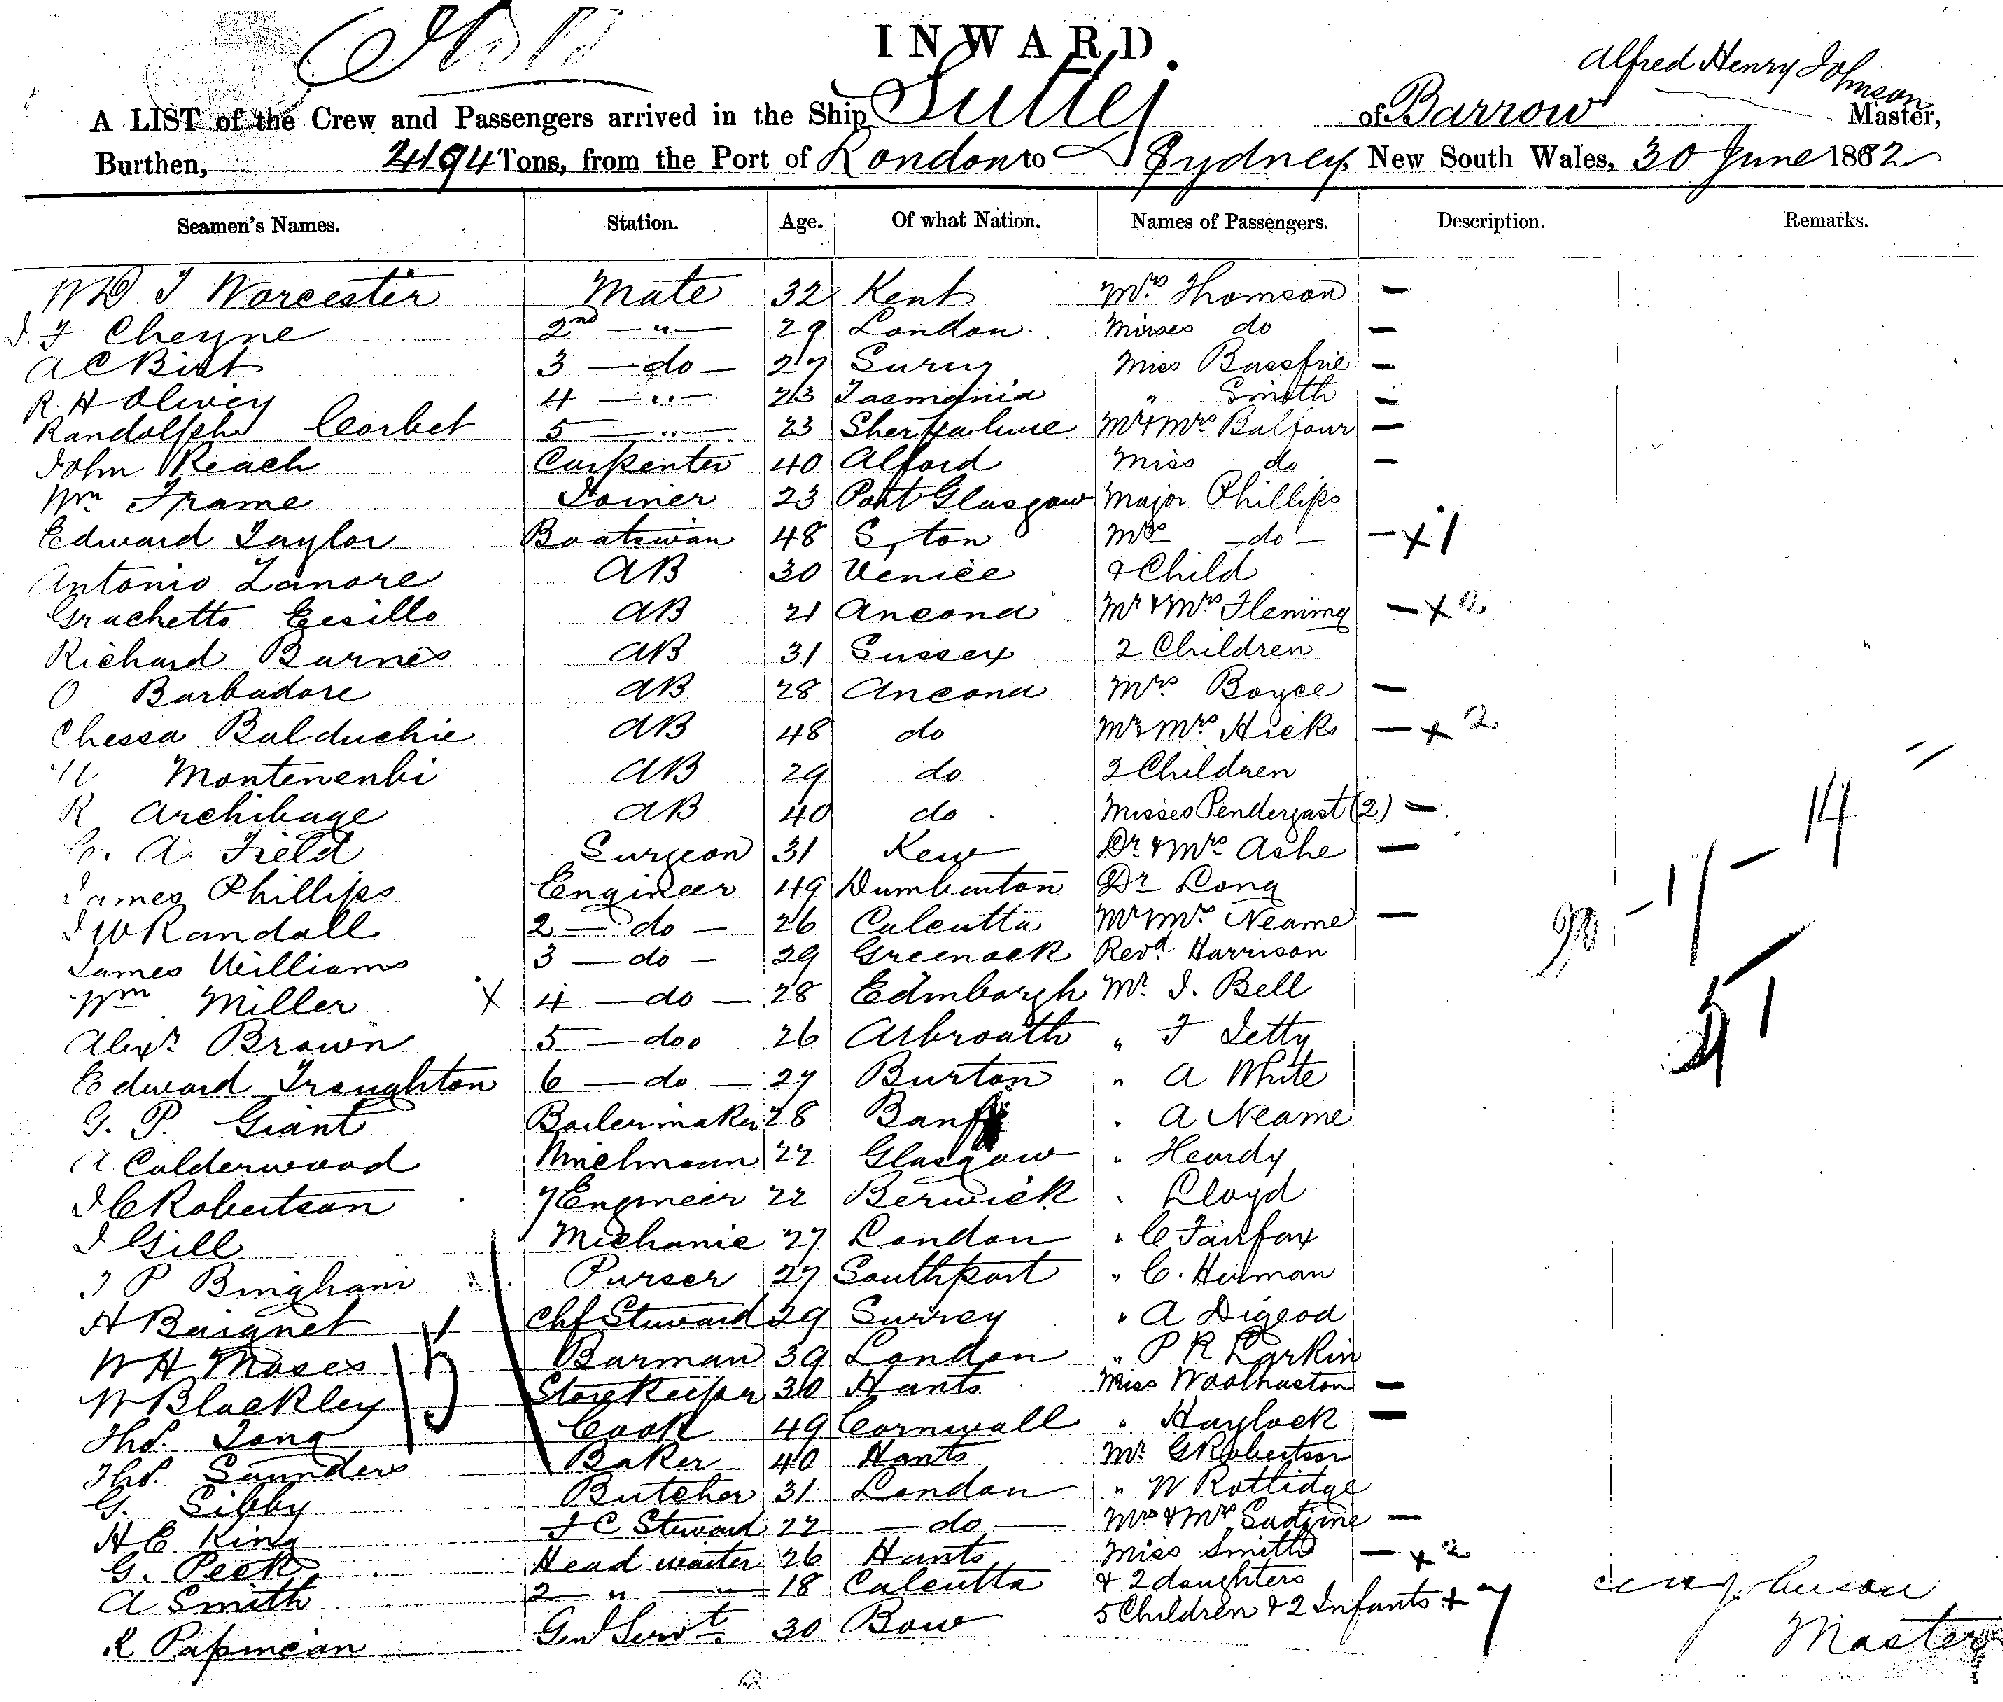 INWARD.
Alfred Henry Johnson
A LIST of the Crew and Passengers arrived in the Ship Sutlej of Barrow Master,
Burthen, 2194 Tons, from the Port of London to Sydney New South Wales, 30 June 1882
Seamen's Names. Station. Age. Of what Nation. Names of Passengers. Description. Remarks.
Worcester Mate 32 Kent Mrs Thomson —
J F Cheyne 2nd — " — 29 London Misses do —
A C Bist 3 — do — 27 Surry Miss —
R H Olivey 4 — " — 23 Tasmania " Smith —
Randolph Corbet 5 — " — 23 Mr & Mrs Balfour —
John Reach Carpenter 40 Alford Miss do —
Wm Frame Joiner 23 Port Glasgow Major Phillips
Edward Taylor Boatswian 48 Mrs — do — — x 1
Antonio Zanore AB 30 Venice & Child
Grachetto Cesillo AB 21 Ancona Mr & Mrs Fleming — x 2
Richard Barnes AB 31 Sussex 2 Children
O Barbadore AB 28 Ancona Mrs Boyce —
Chessa Balduchie AB 48 do Mr Mrs Hicks — x 2
Montenenbi AB 29 do 2 Children
R Archibage AB 40 do Misses Pendergast (2) —
C. A. Field Surgeon 31 Kew Dr & Mrs Ashe —
James Phillips Engineer 49 Dumbarton Dr Long
J W Randall 2 — do — 26 Calcutta Mr Mrs Neame —
James Williams 3 — do — 29 Greenock Revd Harrison
Wm Miller x 4 — do — 28 Edinborgh Mr J. Bell
Alexr Brown 5 — do 26 Arbroath " F Jetty
Edward Troughton 6 — do — 27 Burton " A White
G. P. Giant Boilermaker 28 Banff " A Neame
A Calderwood Winchman 22 Glasgow " Heardy
J C Robertson 7 Engineer 22 Berwick " Lloyd
J Gill Michanic 27 London " C Fairfax
J P Bingham Purser 27 Southport " C. Herman
H Baignet Chf Steward 29 Surrey " A Digeod
W H Moses Barman 39 London " P R Larkin
W Blackley Storekeeper 30 Hants Miss Woolhaston —
Thos. Tong Cook 49 Cornwall " Haylock —
Thos. Saunders Baker 40 Hants Mr G Robertson
G. Sibby Butcher 31 London " W Rottidge
H C King F C Steward 22 — do — Mrs & Mr —
G. Peek Head waiter 26 Hants Miss Smith — x 2
A Smith 2 — " — 18 Calcutta & 2 daughters
R Papineau Genl Servt. 30 Bow 5 Children & 2 Infants + 7
Master